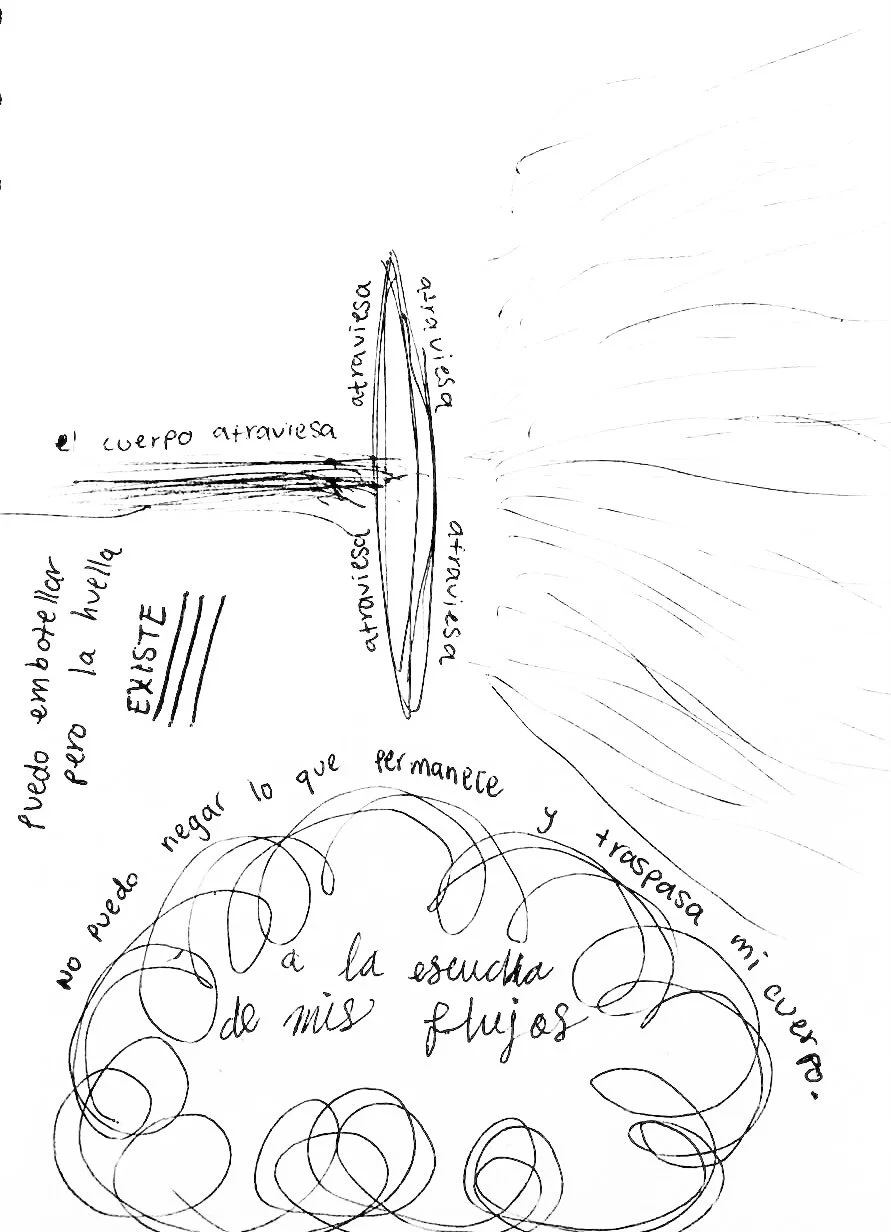 el cuerpo atraviesa
atraviesa
atraviesa
atraviesa
atraviesa
puedo embotellar
pero la huella
EXISTE
No puedo negar lo que permanece y traspasa mi cuerpo.
a la escucha
de mis flujos